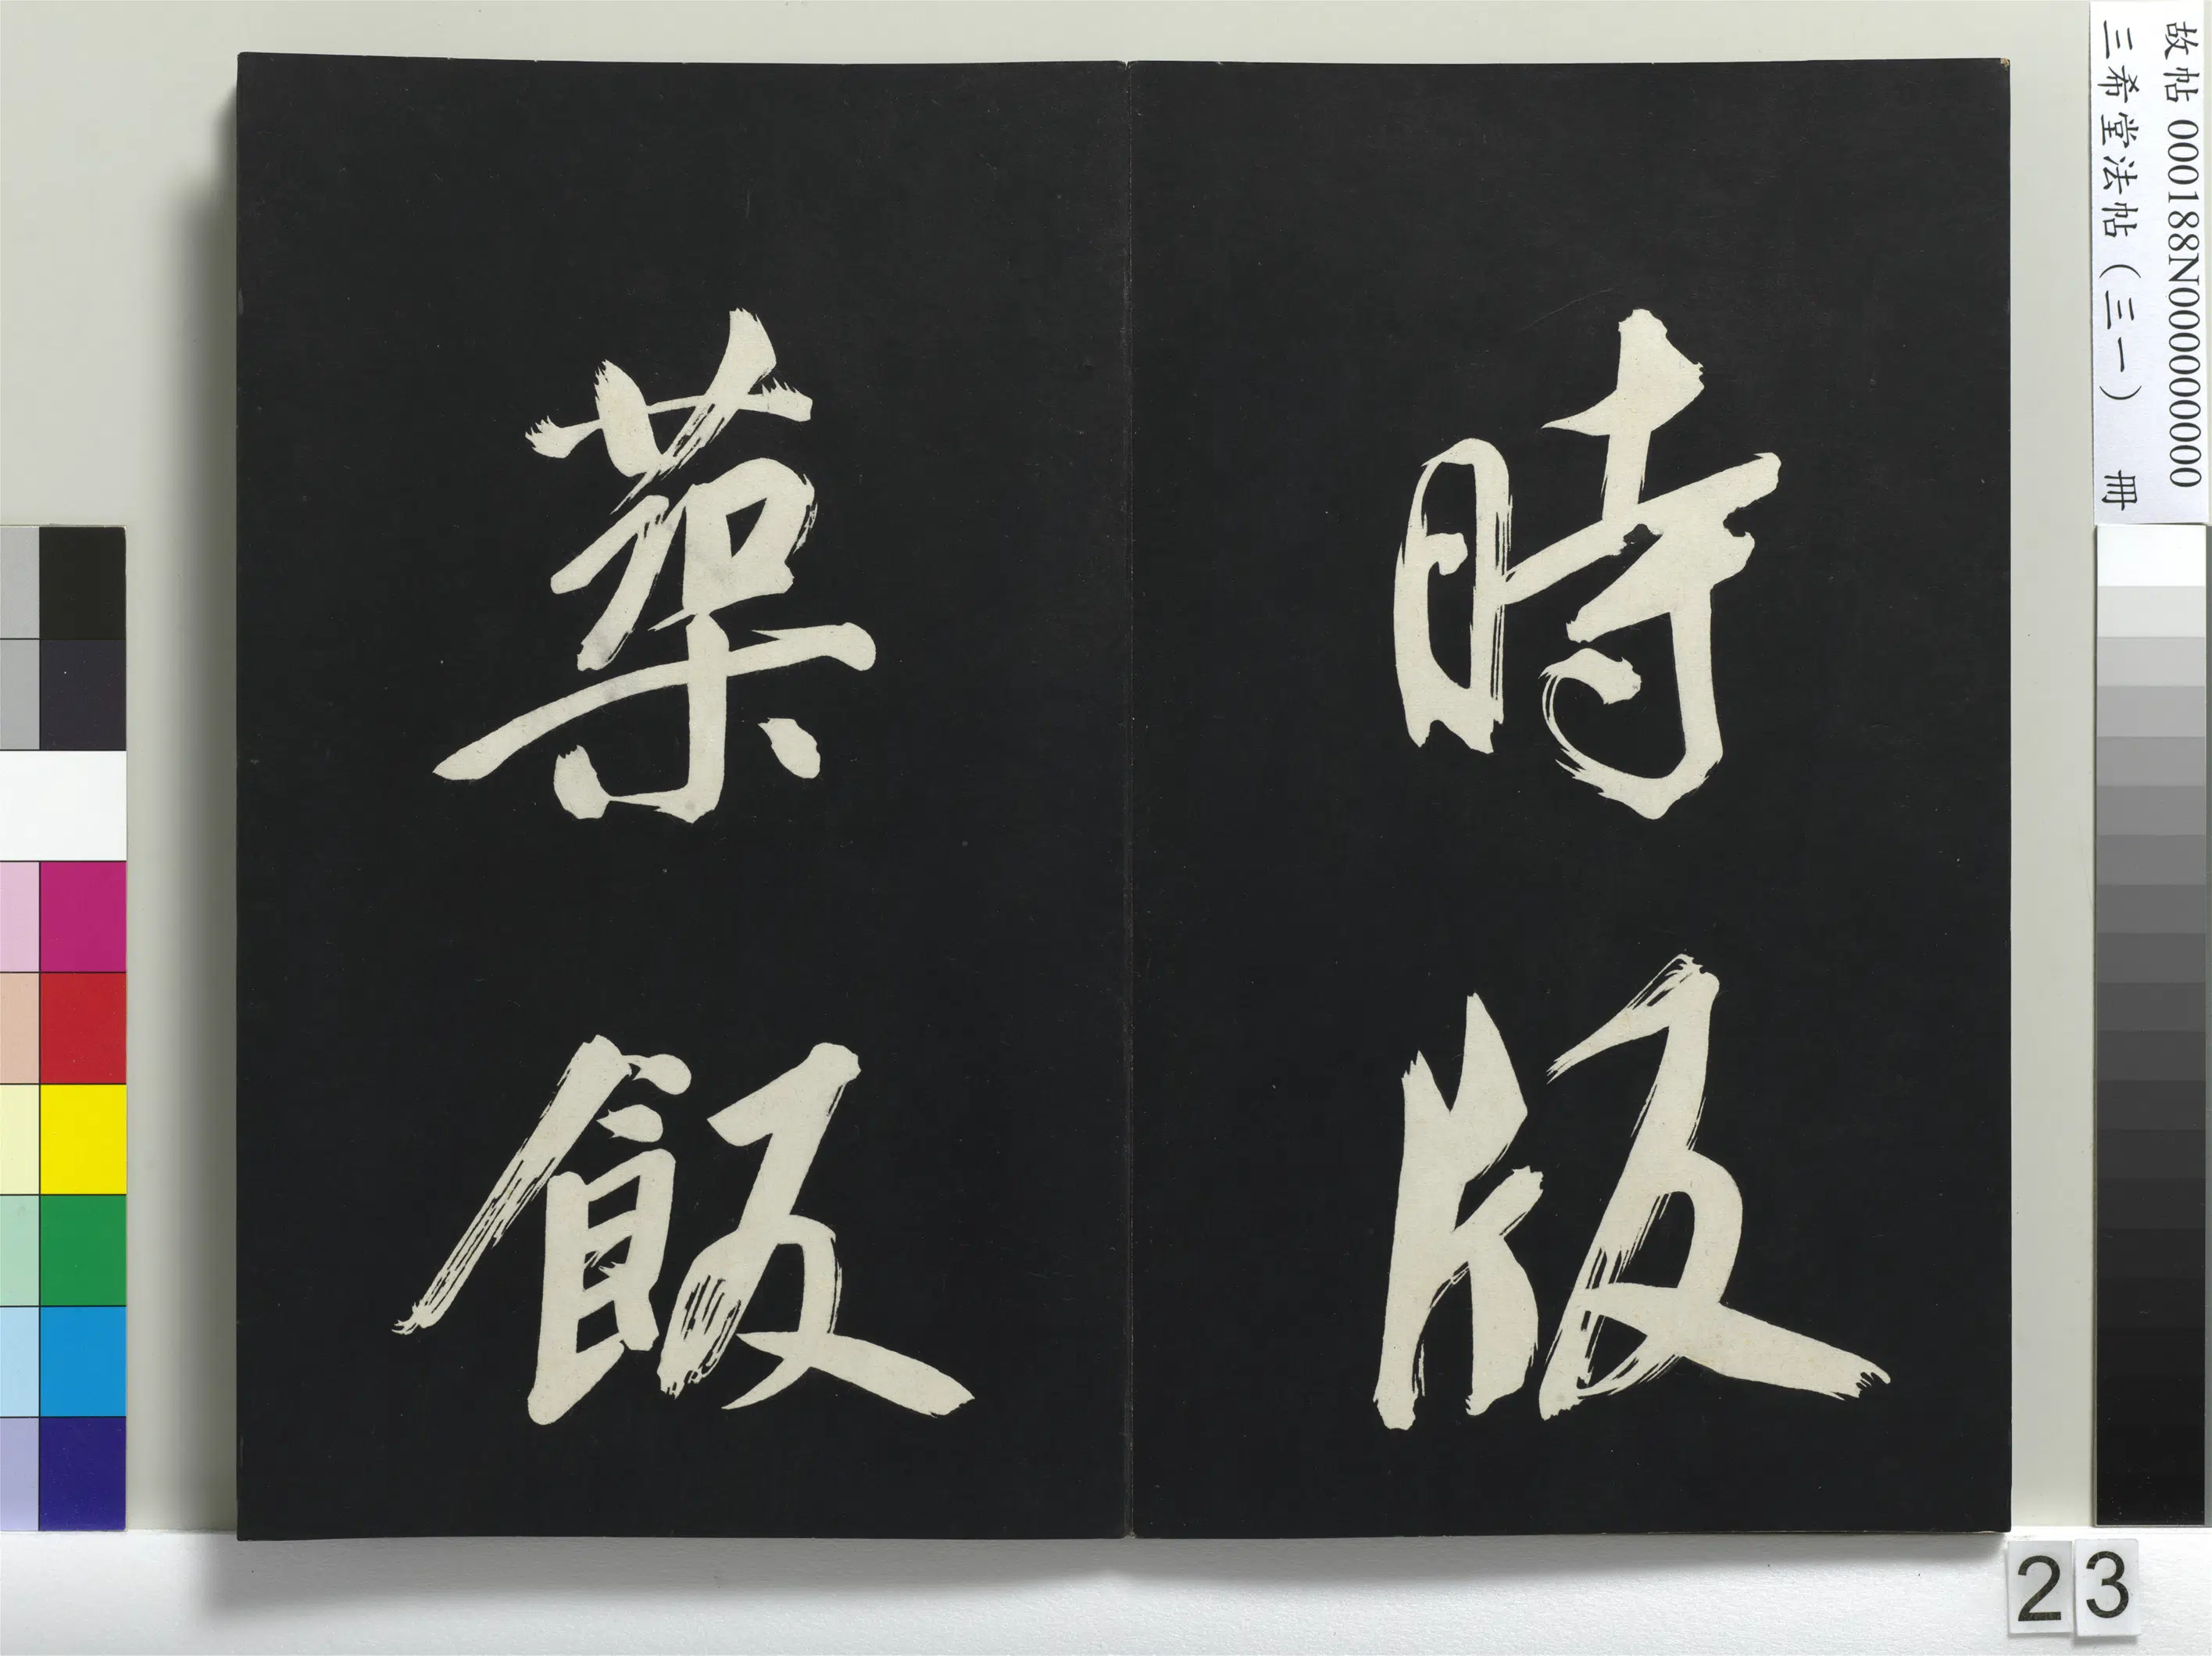 時版
築飯
故帖 000188N000000000
三希堂法帖（三一） 冊
23